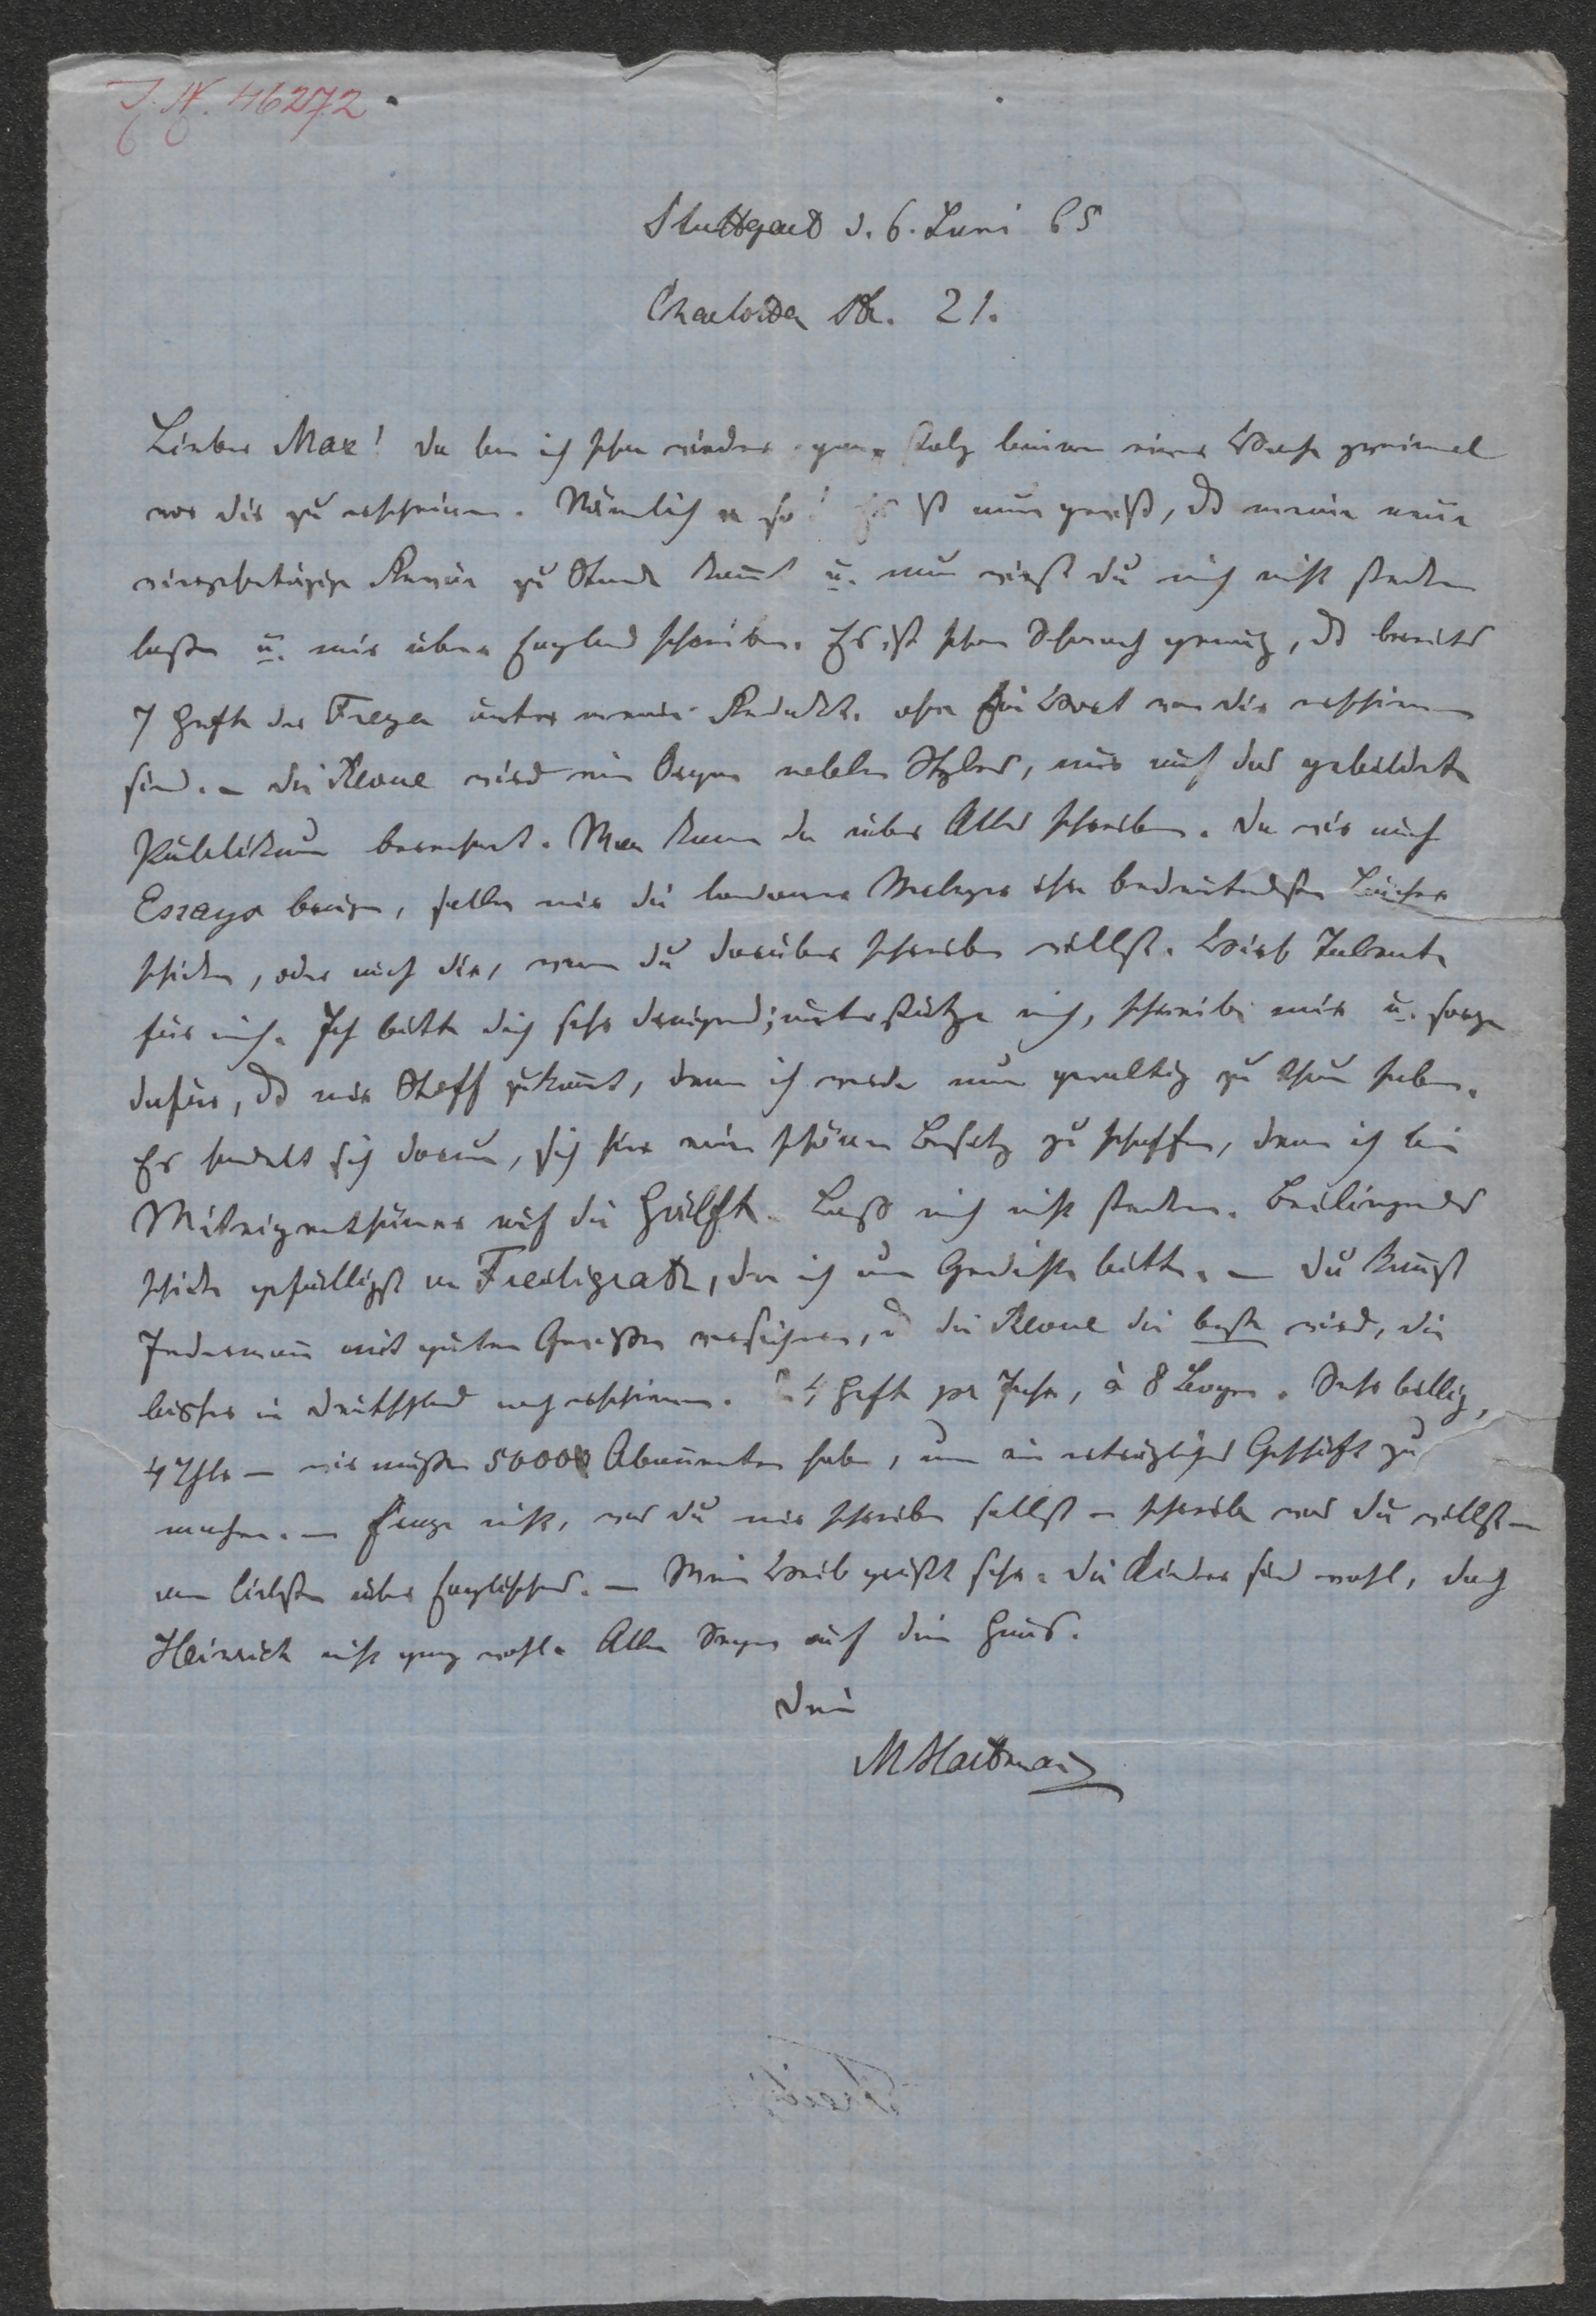 J. N. 46272
Stuttgart d. 6. Juni 65
Charlotten Str. 21.
Lieber Max! Da bin ich schon wieder ganz stolz binnen einer Woche zweimal
vor dir zu erscheinen. Nämlich so! Es ist nun gewiß, dß meine neue
Revue zu Stande kommt u. nun wirst du mich nicht stecken
laßen u. mir über England schreiben. Es ist schon Schmach genug, dß bereits
7 Hefte der Freya unter meiner Redakt. ohne ein Wort von dir erschienen
sind. – Die Revue wird ein Organ edlen Styles, nur auf das gebildete
Publikum berechnet. Man kann da über Alles schreiben. Da wir auch
Essays bringen, sollen mir die Londoner Verleger ihre bedeutendsten Bücher
schicken, oder auch dir, wenn du darüber schreiben willst. Wirb Talente
für mich. Ich bitte dich sehr dringend; unterstütze mich, schreibe mir u. sorge
dafür, dß mir Stoff zukommt, denn ich werde nun gewaltig zu thun haben.
Es handelt sich darum, sich hier einen schönen Besitz zu schaffen, denn ich bin
Miteigenthümer auf die Hälfte. Laß mich nicht stecken. Beiliegendes
schicke gefälligst an Freiligrath, den ich um Gedichte bitte. – Du kannst
Jedermann mit gutem Gewißen versichern, dß die Revue die beste wird, die
bisher in Deutschland noch erschienen. 4 Hefte per Jahr, à 8 Bogen. Sehr billig,
4 Thlr – wir müßen 5000 Abonnenten haben, um ein erträgliches Geschäft zu
machen. – Frage nicht, was du mir schreiben sollst – schreibe was du willst –
am liebsten über Englisches. – Mein Weib grüßt sehr. Die Kinder sind wohl, doch
Heinrich nicht ganz wohl. Allen Segen auf dein Haus.
Dein
M Hartmann